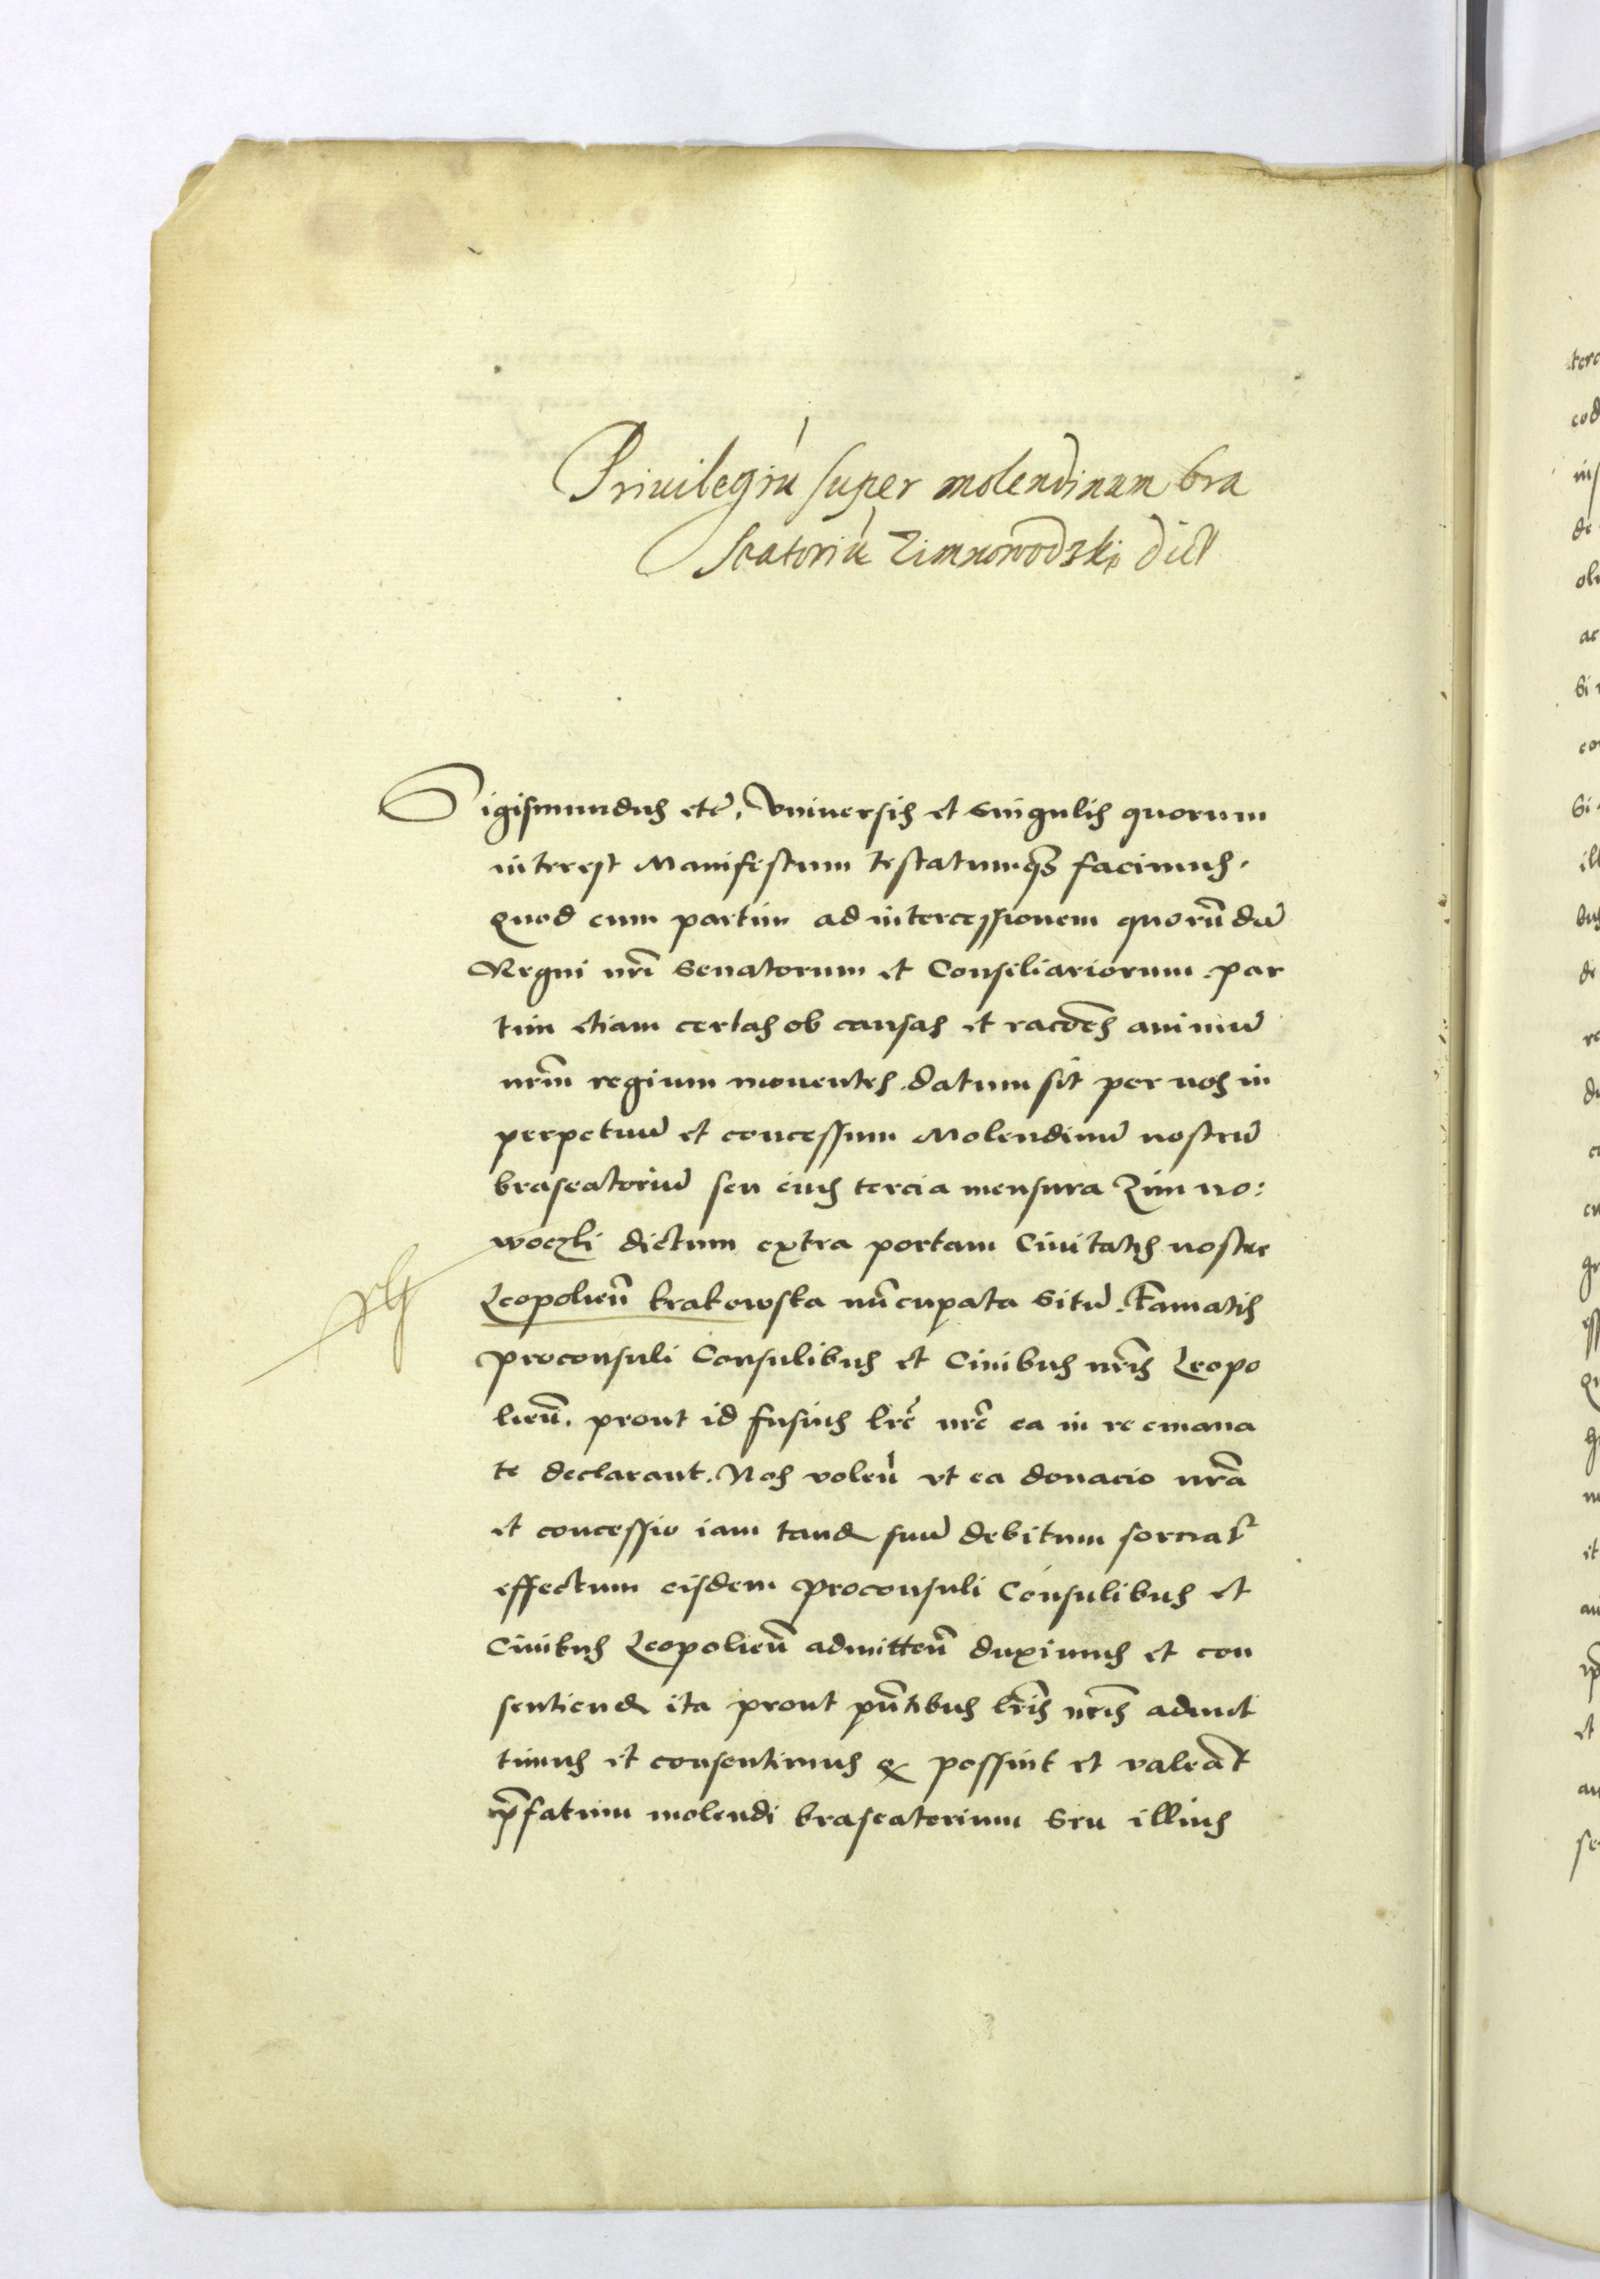 Privilegiu super molendinum bra
seatoriu Zimnowodzki dict
Sigismundus etc̃. Vniversis et singulis quorum
interest Manifestum testatumq3 facimus.
Quod cum partim ad intercessionem quorũdã
Regni nr̃i Senatorum et Consiliariorum par
tim etiam certas ob causas et racões animũ
nrm̃ regium moventes datum sit per nos in
perpetuũ et concessum Molendinũ nostrũ
braseatoriũ seu eius tercia mensura Zimno:
woczki dictum extra portam Civitatis nostre
Leopolieñ krakowska nũcupata Sitũ. Famatis
proconsuli Consulibus et Civibus nr̃is Leopo
lieñ. prout id fusius lr̃e nr̃e ea in re emana
te declarant. Nos voleñ ut ea donacio nr̃a
et concessio iam tand suũ debitum sorciat̃
effectum eisdem proconsuli Consulibus et
Civibus Leopolieñ admitteñ duximus et con
sentiend ita prout pñtibus lr̃is nr̃is admit
timus et consentimus q possint et valeãt
p̃fatum molendi braseatorium Seu illius